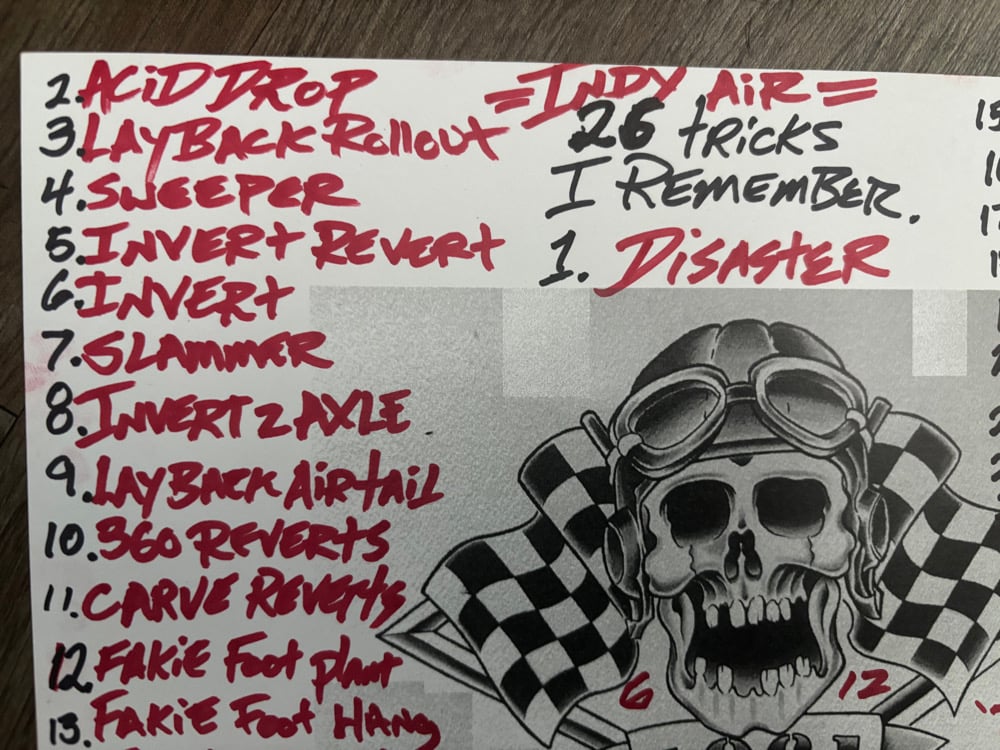 =INDY AIR=
26 tRICKS
I REMEMBER.
1. DiSAStER
2. ACiD DROP
3. LAYBACK Rollout
4. SWEEPER
5. INVERt REVERt
6. INVERt
7. SLAMMER
8. INVERT 2 AXLE
9. LAYBACK AiRtAiL
10. 360 REVERtS
11. CARVE REVERtS
12. FAKiE Foot plant
13. FAKiE Foot HANG
6 12
15